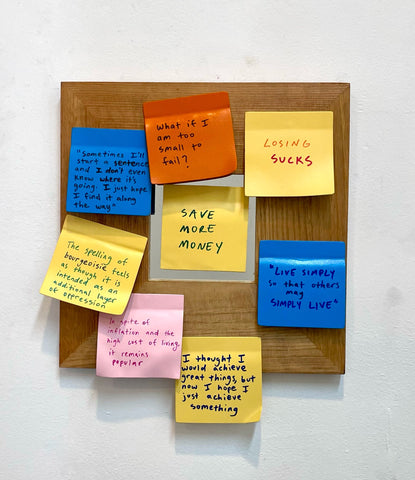 What if I
am too
small to
fail?
LOSING
SUCKS
"Sometimes I'll
start a sentence
and I don't even
know where it's
going. I just hope
I find it along
the way"
SAVE
MORE
MONEY
The spelling of
bourgeoisie feels
as though it is
intended as an
additional layer
of oppression
"LIVE SIMPLY
So that others
may
SIMPLY LIVE"
In spite of
inflation and the
high cost of living,
it remains
popular
I thought I
would achieve
great things, but
now I hope I
just achieve
something